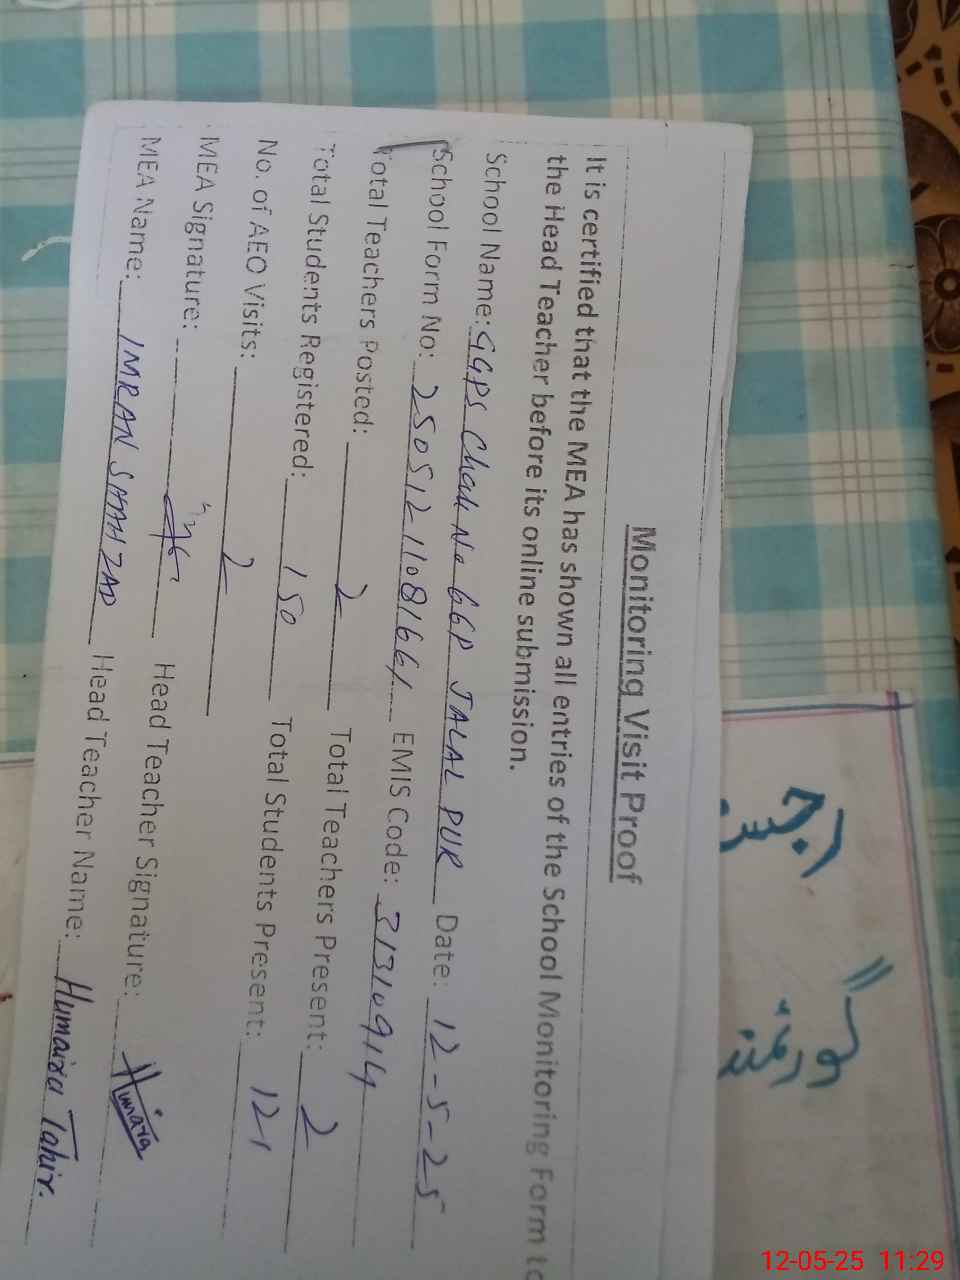 Monitoring Visit Proof
It is certified that the MEA has shown all entries of the School Monitoring Form to
the Head Teacher before its online submission.
School Name: GGPS Chak No 66P JALAL PUR Date: 12-5-25
School Form No: 25051211081661 EMIS Code: 31310914
Total Teachers Posted: 2 Total Teachers Present: 2
Total Students Registered: 150 Total Students Present: 121
No. of AEO Visits: 2
MEA Signature: Head Teacher Signature: Humaira
MEA Name: IMRAN SHAHZAD Head Teacher Name: Humaira Tahir.
12-05-25 11:29